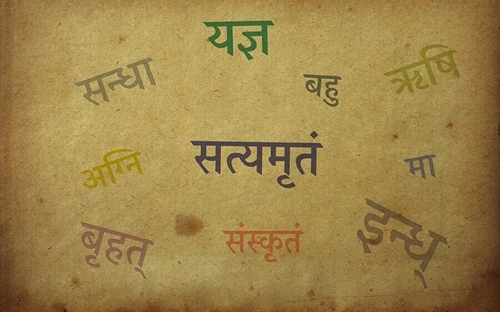 यज्ञ
सन्धा
बहु
ऋषि
अग्नि
सत्यमृतं
मा
बृहत्
संस्कृतं
इन्ध्